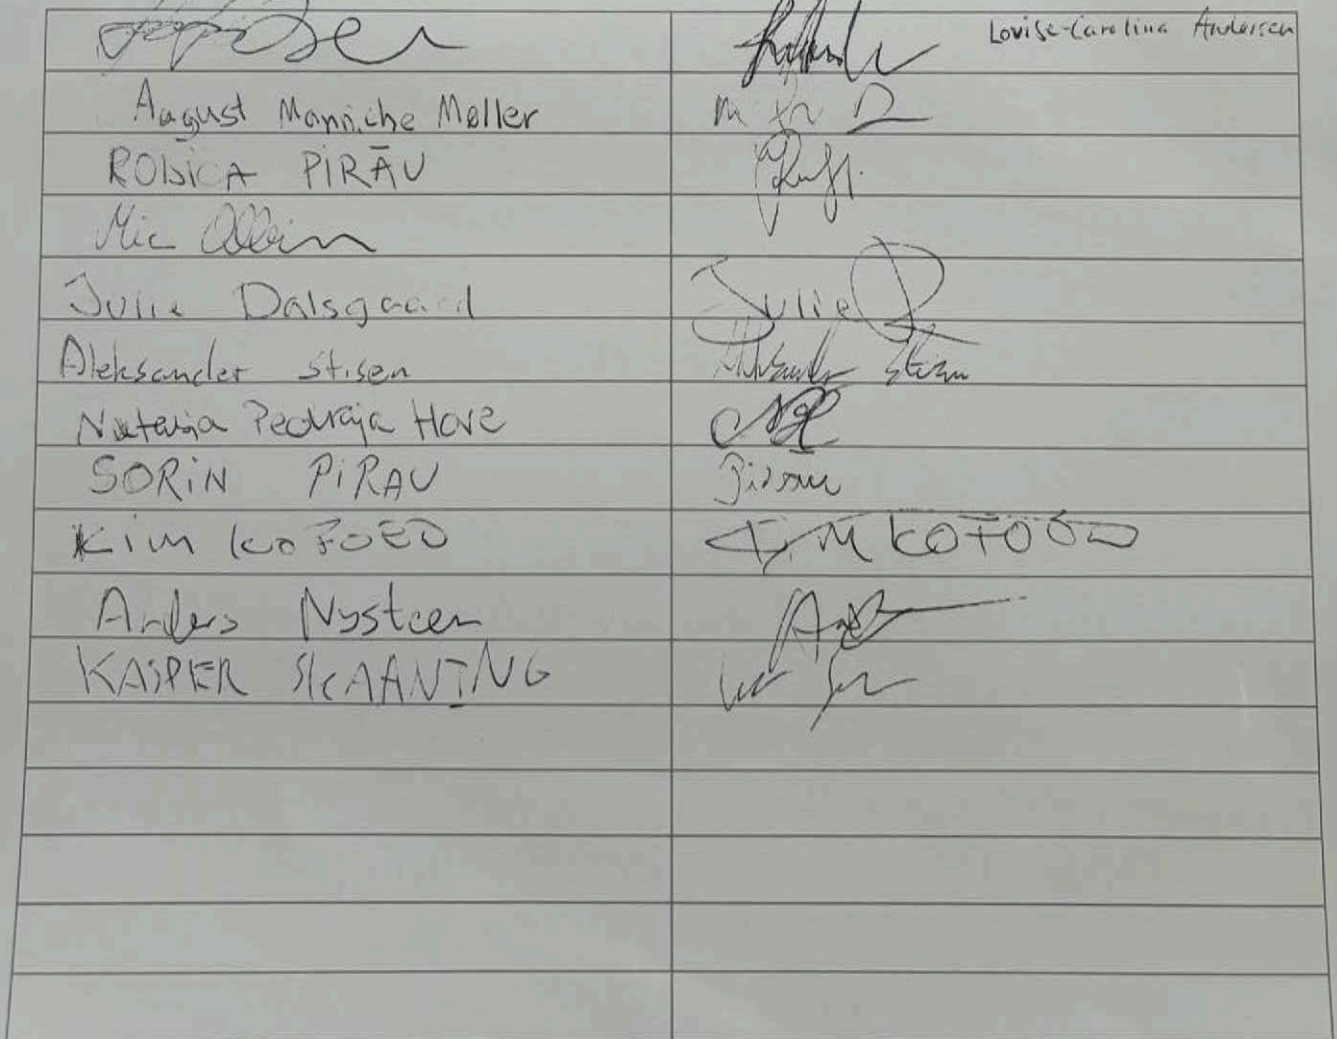 Lovise-Carolina Andersen
August Manniche Møller
PIRĂU
Mie
Julie Dalsgaard Julie
Aleksander Stisen Aleksander Stisen
Pedraja Hove
SORIN PIRAU Pirau
Kim KOFOED KIM KOFOED
Anders Nysteen
KASPER SKAANING